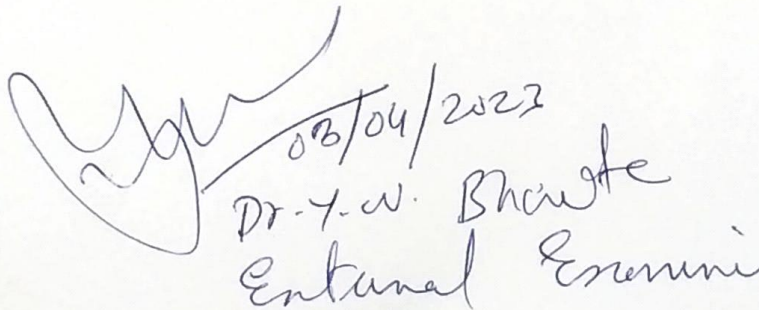 03/04/2023
Dr. Y. N. Bhowte
External Examine